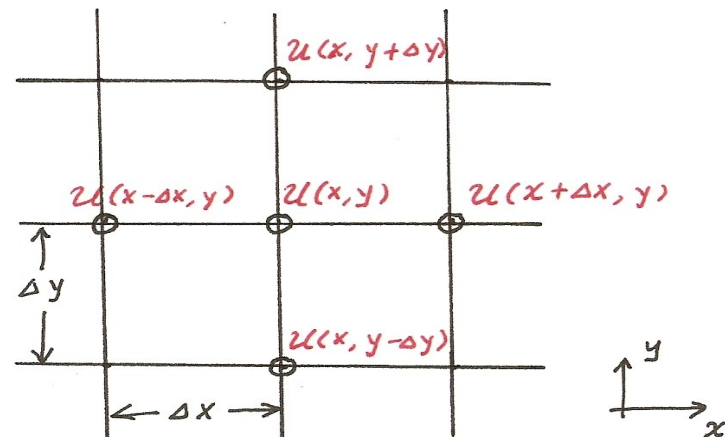 U(x, y+Δy)
U(x-Δx, y) U(x,y) U(x+Δx, y)
Δy
U(x, y-Δy)
y
Δx
x